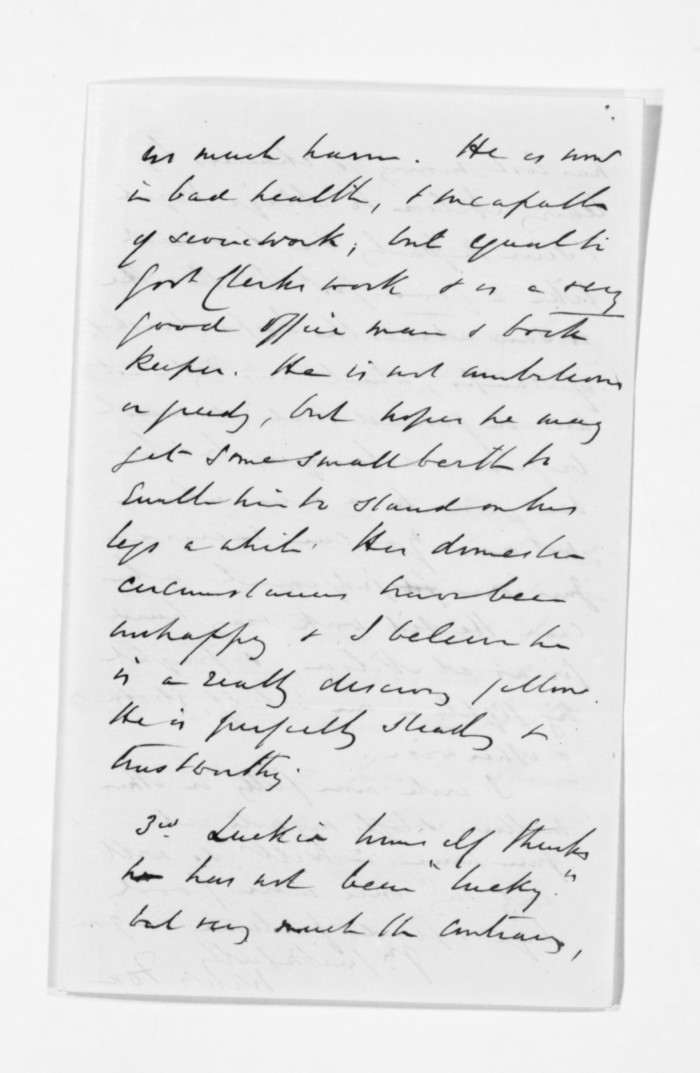 us much harm. He is now
in bad health, & incapable
of severe work; but equal to
Govt Clerks work & is a very
good office man & book
keeper. He is not ambitious
or greedy, but hopes he may
get some small berth to
enable him to stand on his
legs a while. His domestic
circumstances have been
unhappy & I believe he
is a really deserving fellow.
He is perfectly steady &
trustworthy.
3rd. Luckie himself thinks
he has not been "lucky."
but very much the contrary,